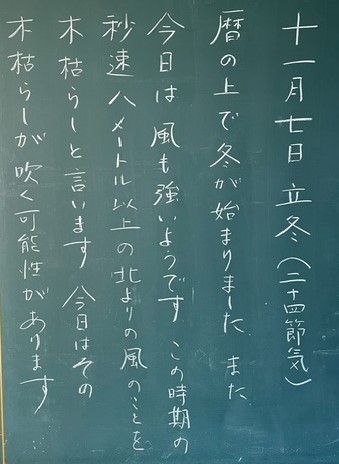 十一月七日 立冬(二十四節気)
暦の上で冬が始まりました また、
今日は 風も強いようです この時期の
秒速八メートル以上の北よりの風のことを
木枯らしと言います 今日はその
木枯らしが吹く可能性があります